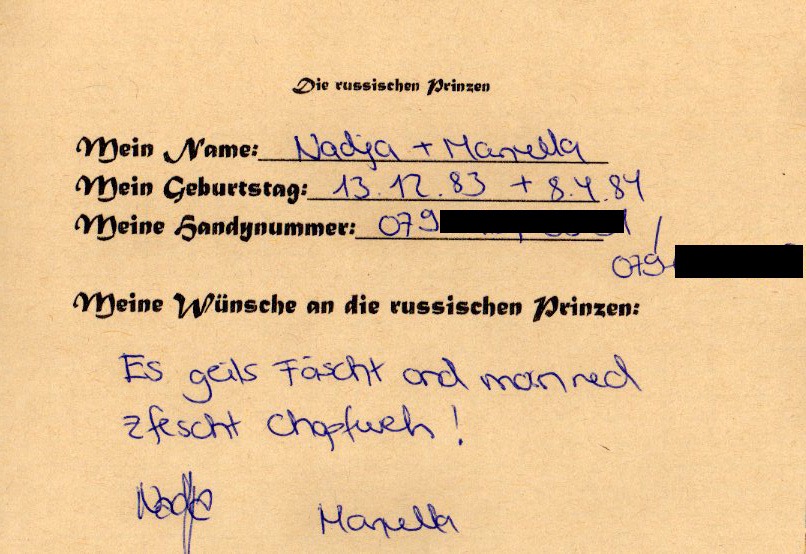 Die russischen Prinzen
Mein Name: Nadja + Marzella
Mein Geburtstag: 13.12.83 + 8.4.84
Meine Handynummer: 079 /
079
Meine Wünsche an die russischen Prinzen:
Es geils Fäscht ond morn ned
zfescht Chopfweh!
Nadja
Marzella